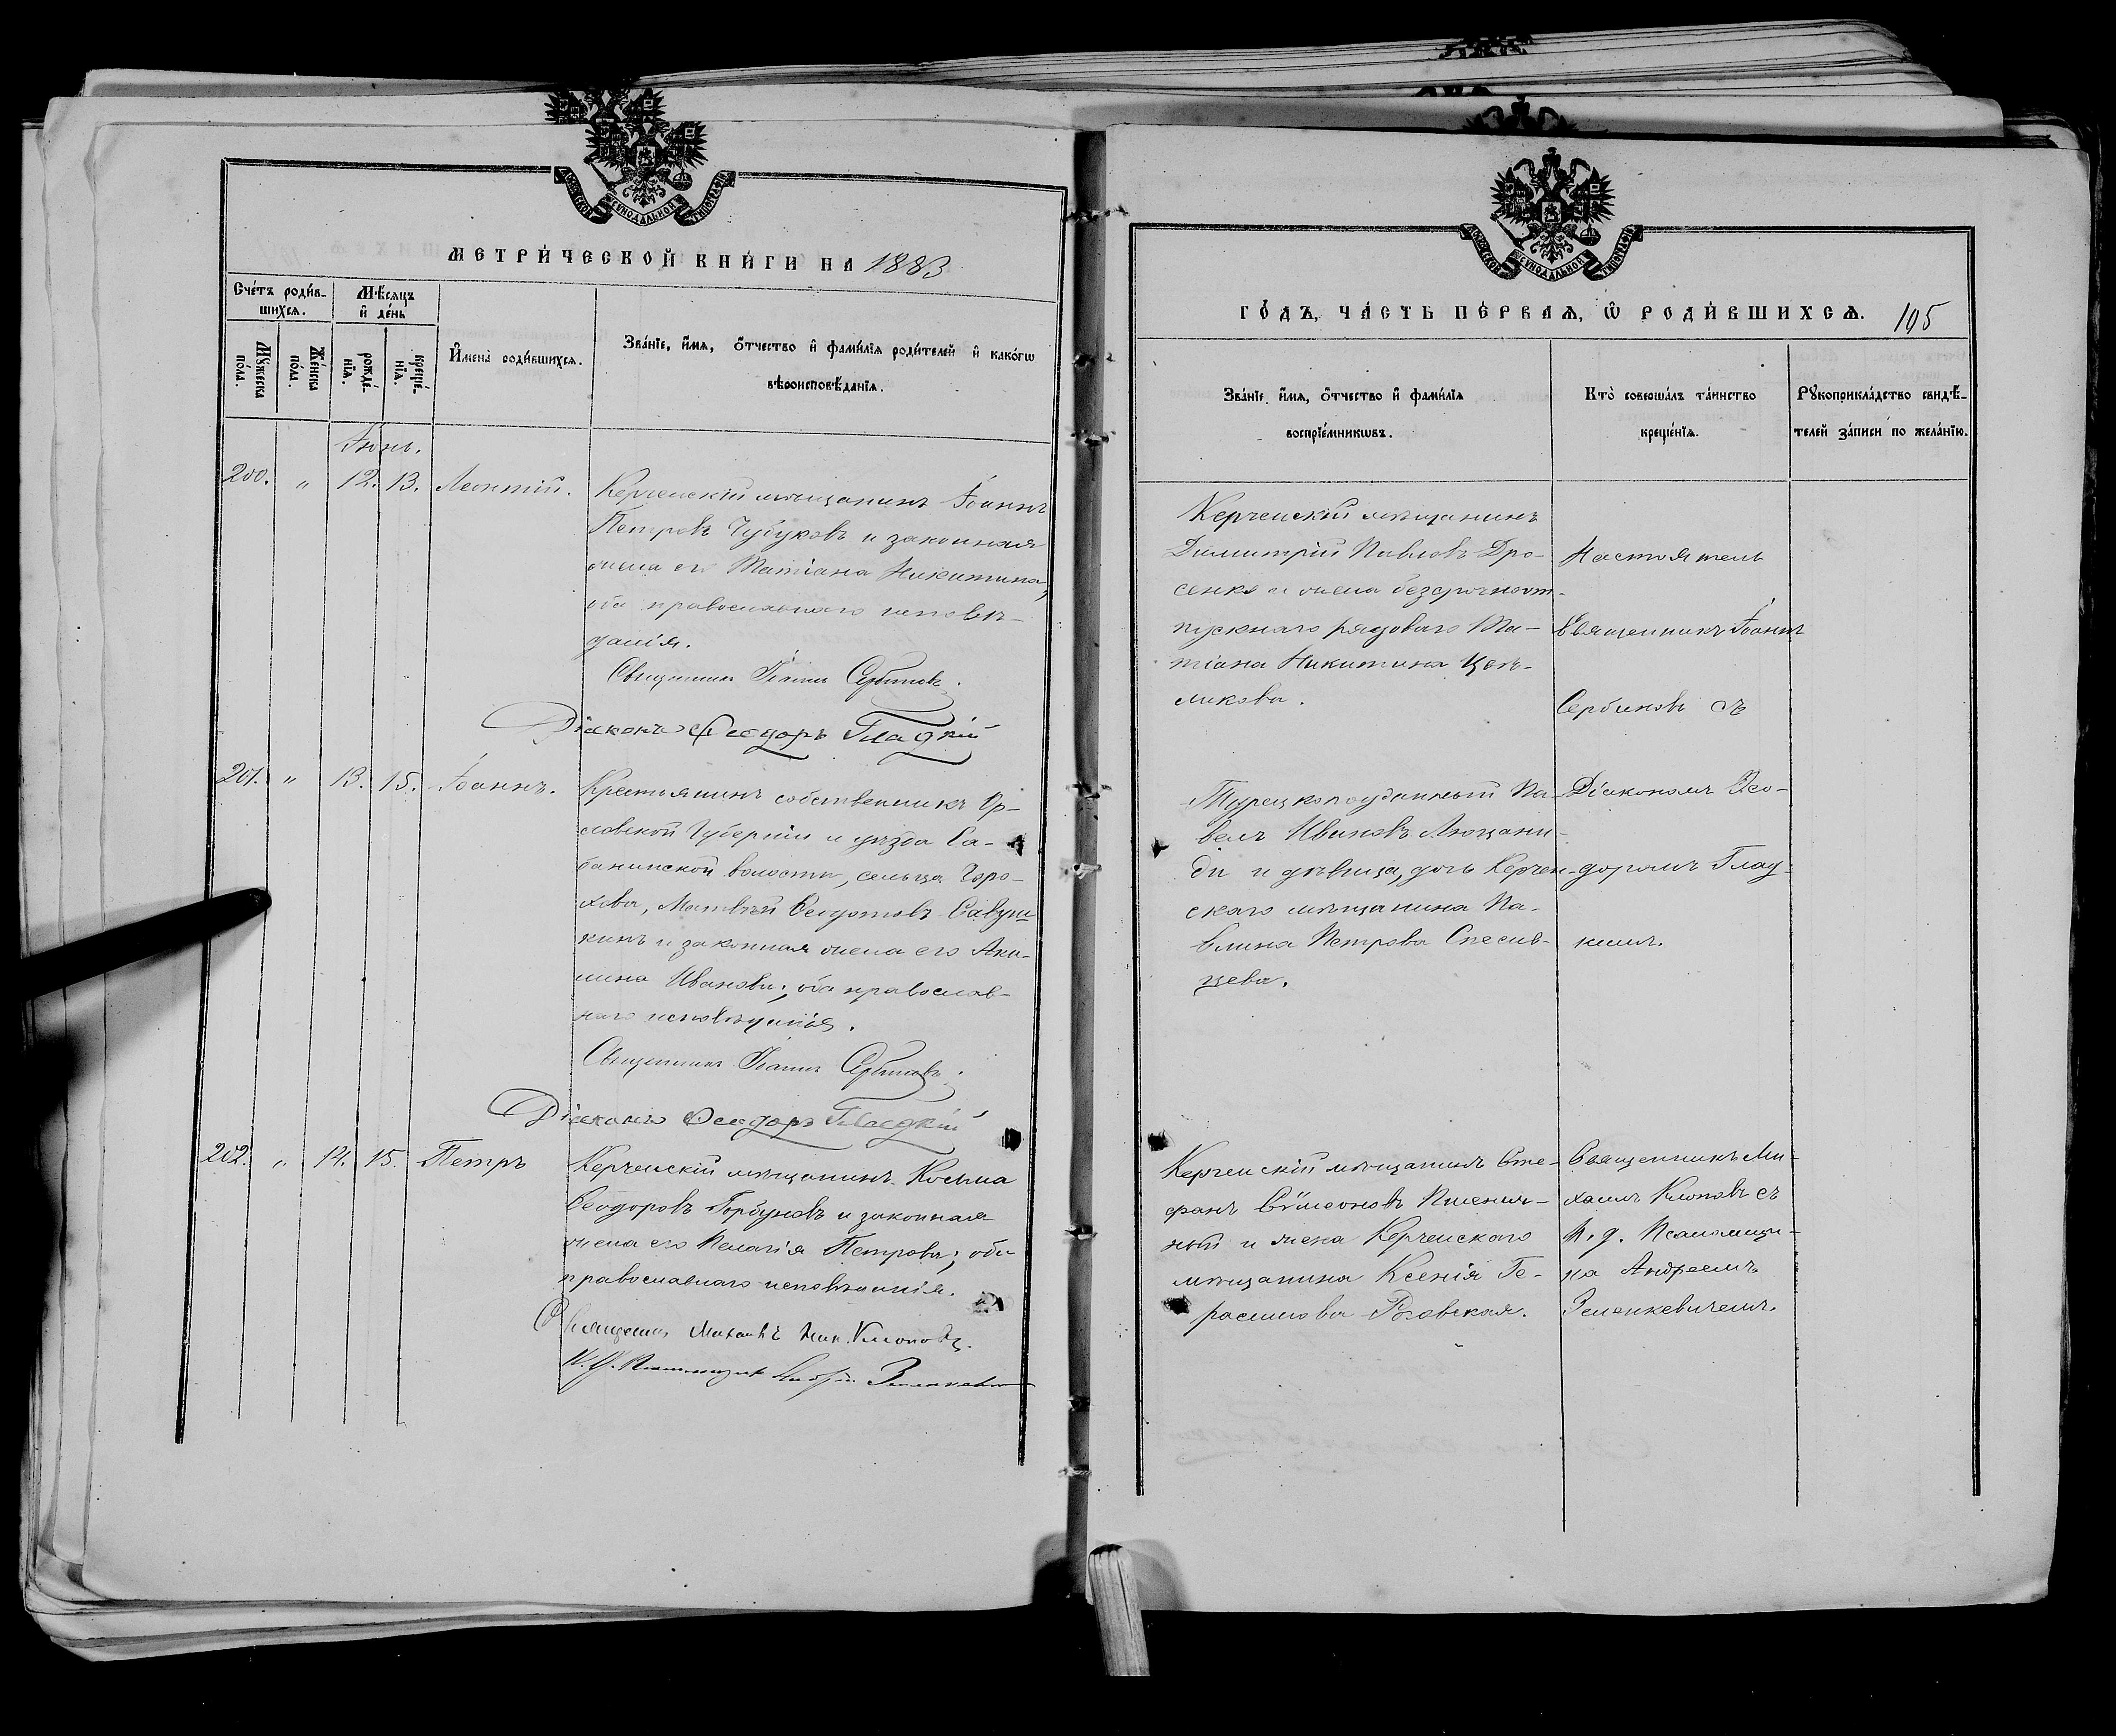 МЕТРИ́ЧЕСКОЙ КНИ́ГИ НА 1883
Сче́тъ роди́в-
шихсѧ.
Мѣ́сѧцъ
и҆ де́нь
Мꙋ́жеска
по́ла.
Же́нска
по́ла.
рожде́-
нїѧ.
креще́-
нїѧ.
И҆мена̀ роди́вшихсѧ.
Зва́нїе, и҆́мѧ, ѻ҆́тчество и҆ фами́лїѧ роди́телей и҆ како́гѡ
вѣроисповѣ́данїѧ.
Іюнь.
200. „ 12. 13. Леонтій.
Керченскій мѣщанинъ Іоаннъ
Петровъ Чубуковъ и законная
жена его Татіана Никитина,
оба православнаго исповѣ-
данія.
Священникъ Іоаннъ Сербиновъ.
Діаконъ Ѳеодоръ Гладкій
201. „ 13. 15. Іоаннъ.
Крестьянинъ собственникъ Ор-
ловской Губерніи и уѣзда Ба-
банинской волости, сельца Горо-
хова, Матвѣй Ѳеодотовъ Савуш
кинъ и законная жена его Аки-
лина Иванова; оба православ-
наго исповѣданія.
Священникъ Іоаннъ Сербиновъ.
Діаконъ Ѳеодоръ Гладкій
202. „ 14. 15. Петръ
Керченскій мѣщанинъ Косьма
Ѳеодоровъ Горбуновъ и законная
жена его Пелагія Петрова; оба
православнаго исповѣданія.
Священникъ Михаилъ Клоповъ.
И. д. Псаломщика Андрей Зеленкевичъ
ГО́ДЪ, ЧА́СТЬ ПЕ́РВАѦ, Ѽ РОДИ́ВШИХСѦ. 105
Зва́нїе, и҆́мѧ, ѻ҆́тчество и҆ фами́лїѧ
воспрїе́мникѡвъ.
Кто̀ соверша́лъ та́инство
креще́нїѧ.
Рꙋкоприкла́дство свидѣ́-
телей за́писи по жела́нїю.
Керченскій мѣщанинъ
Димитрій Павловъ Дро-
сенко и жена безсрочноот-
пускнаго рядоваго Та-
тіана Никитина Цев-
ликова.
Настоятель
Священникъ Іоаннъ
Сербиновъ съ
Турецкоподданный Па-
велъ Ивановъ Люцани-
ди и дѣвица, дочь Керчен-
скаго мѣщанина Па-
влина Петрова Спесив-
цева.
Діакономъ Ѳео-
доромъ Глад-
кимъ.
Керченскій мѣщанинъ Сте-
фанъ Сѵмеоновъ Пшенич-
ный и жена Керченскаго
мѣщанина Ксенія Ге-
расимова Роговская.
Священникъ Ми-
хаилъ Клоповъ съ
И. д. Псаломщи-
ка Андреемъ
Зеленкевичемъ.